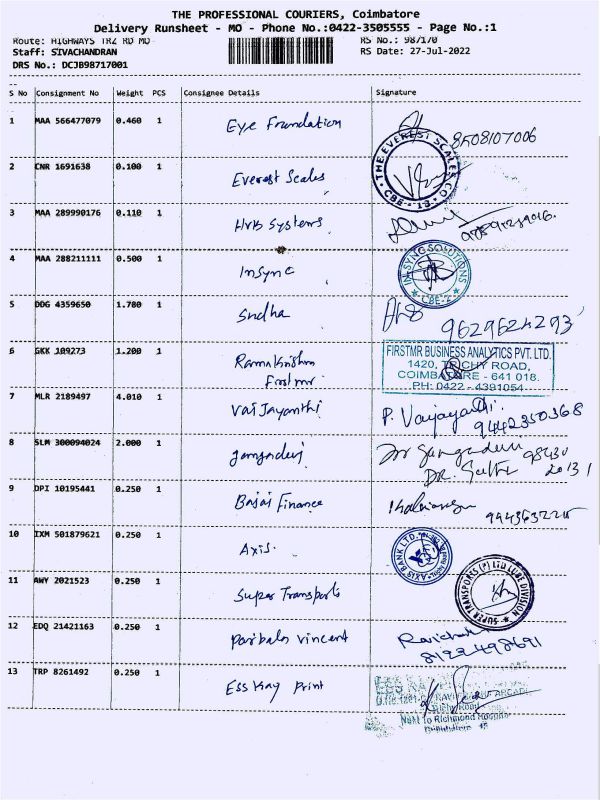 THE PROFESSIONAL COURIERS, Coimbatore
Delivery Runsheet - MO - Phone No.:0422-3505555 - Page No.:1
Route: HIGHWAYS TRZ RD MO RS No.: 987170
Staff: SIVACHANDRAN RS Date: 27-Jul-2022
DRS No.: DCJB98717001
S No Consignment No Weight PCS Consignee Details Signature
1 MAA 566477079 0.460 1 Eye Foundation 8508107006
2 CNR 1691638 0.100 1 Everest Scales THE EVEREST SCALES CO. CBE - 18
3 MAA 289990176 0.110 1 HVB Systems
4 MAA 288211111 0.500 1 Insync IN-SYNC SOLUTIONS CBE-2
5 DDG 4359650 1.780 1 Sudha 9629624293
6 GKK 109273 1.200 1 Ramakrishna
Firstmr
FIRSTMR BUSINESS ANALYTICS PVT. LTD.
1420, TRICHY ROAD,
COIMBATORE - 641 018.
PH: 0422 - 4391054
7 MLR 2189497 4.010 1 Vaijayanthi P. Vaijayanthi.
9442350368
8 SLM 300094024 2.000 1
DR.
9 DPI 10195441 0.250 1 Bajaj Finance
10 IXM 501879621 0.250 1 Axis. AXIS BANK LTD.
11 AWY 2021523 0.250 1 Super Transports SUPER TRANSPORTS (P) LTD CBE DIVISION
12 EDQ 21421163 0.250 1 vincent
13 TRP 8261492 0.250 1 Ess Kay Print ESS KAY
Next to Richmond